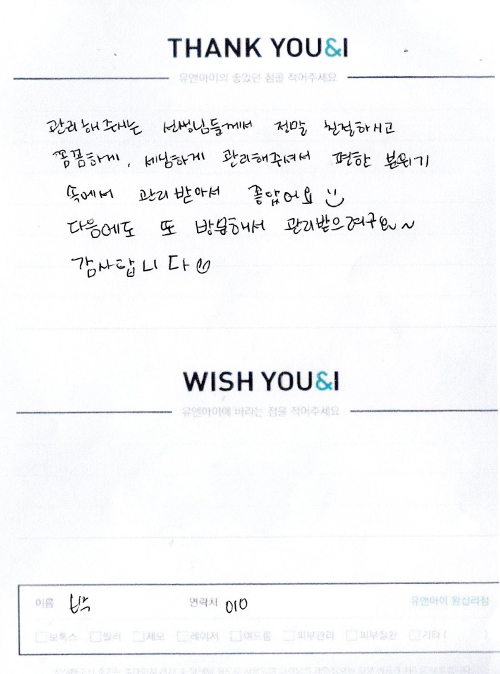 THANK YOU&I
유앤아이의 좋았던 점을 적어주세요
관리해주시는 선생님들께서 정말 친절하시고
꼼꼼하게, 세심하게 관리해주셔서 편한 분위기
속에서 관리 받아서 좋았어요
다음에도 또 방문해서 관리받으려구요~
감사합니다
WISH YOU&I
유앤아이에 바라는 점을 적어주세요
이름 박 연락처 010 유앤아이 왕십리점
보톡스 필러 제모 레이저 여드름 피부관리 피부질환 기타 ( )